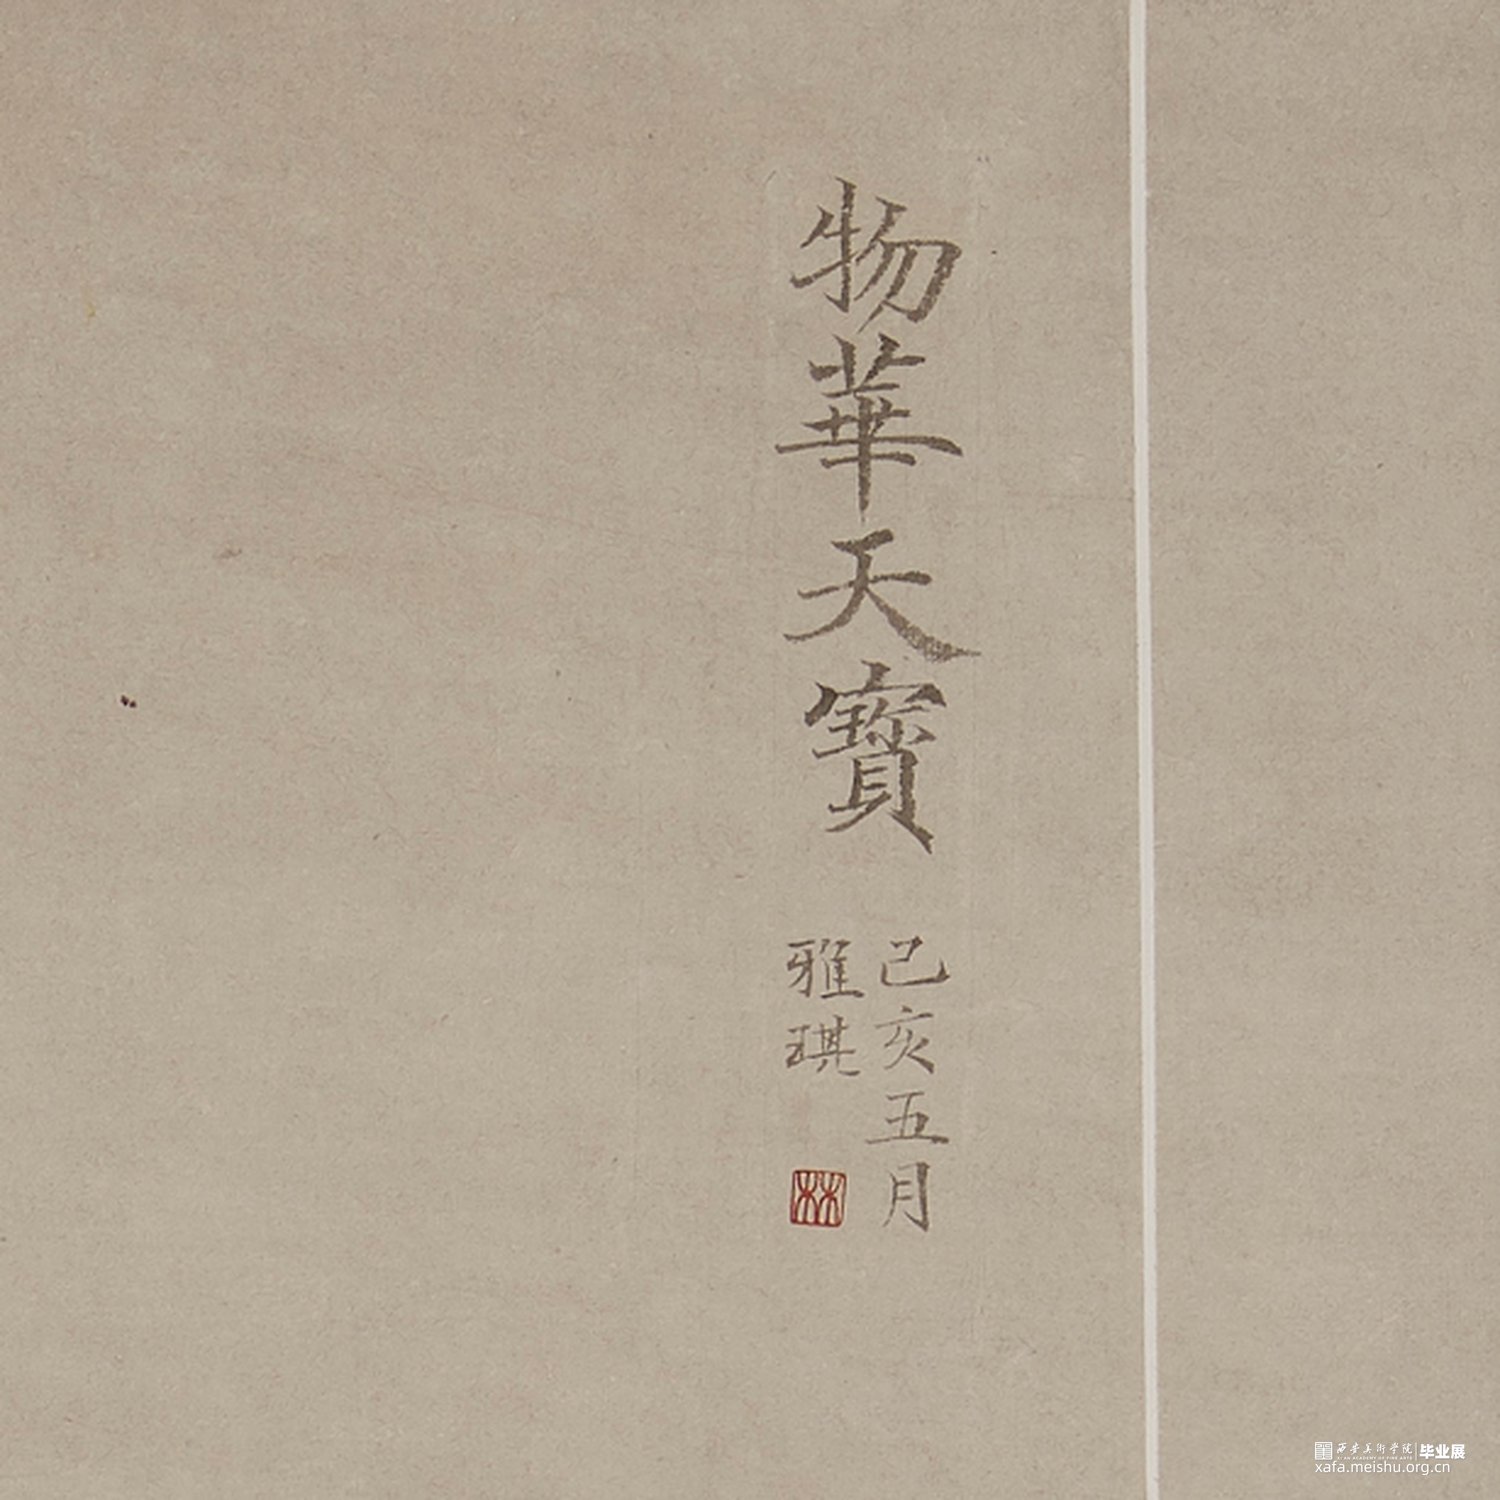 物華天寶
己亥五月
雅琪
林
西安美術学院 毕业展
XI'AN ACADEMY OF FINE ARTS
xafa.meishu.org.cn